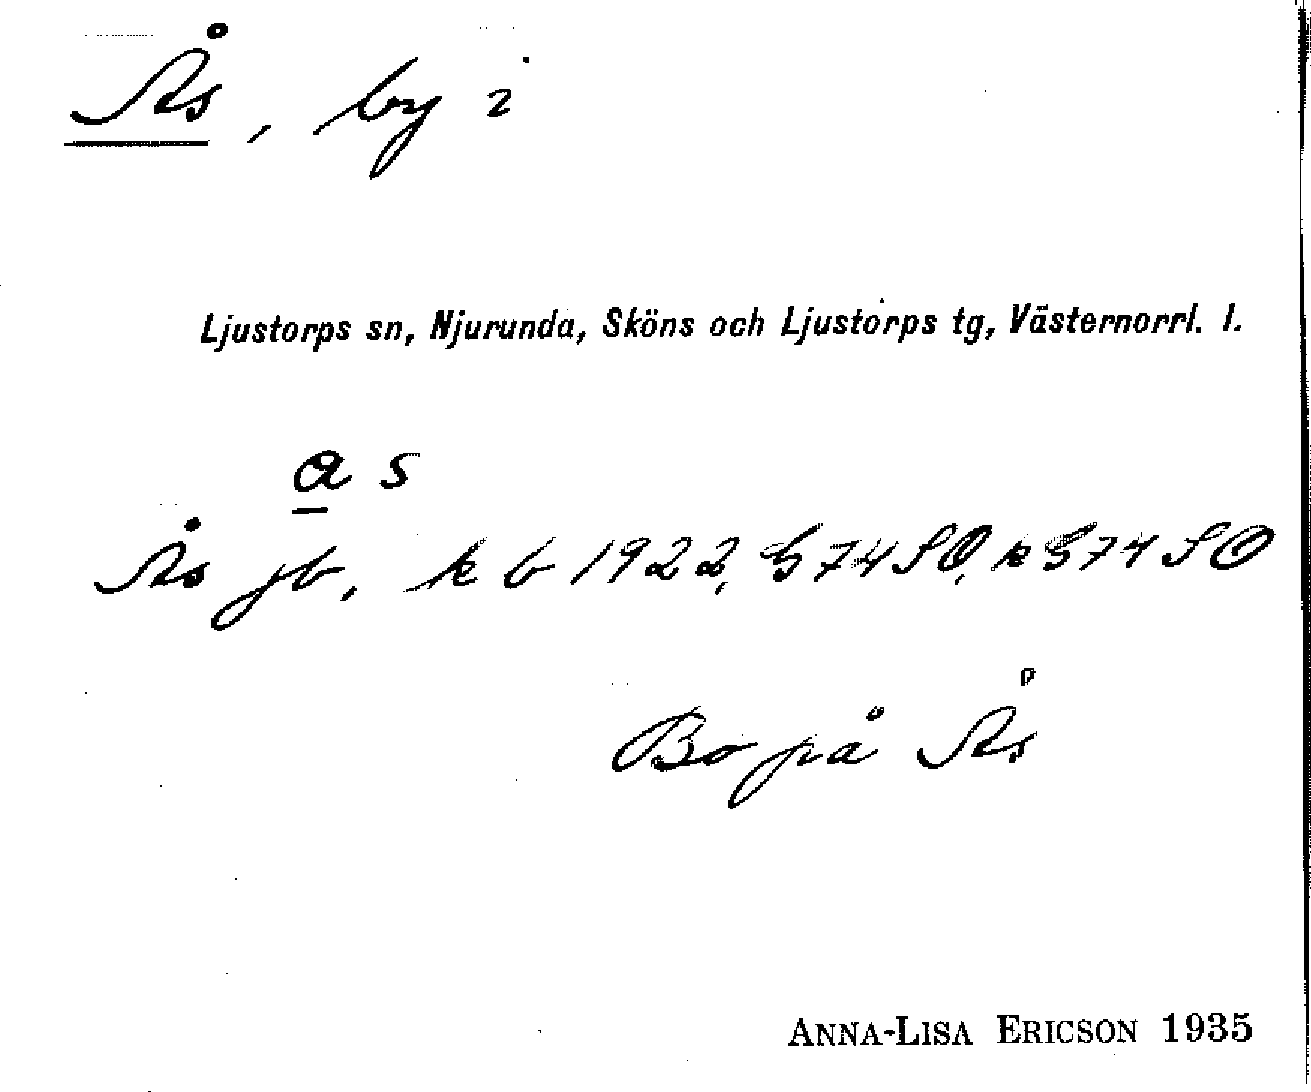 Ås, by i
Ljustorps sn, Njurunda, Sköns och Ljustorps tg, Västernorrl. l.
a s
Ås jb, kb 1922, G74SO, k G74 SO
Bo på Ås
ANNA-LISA ERICSON 1935